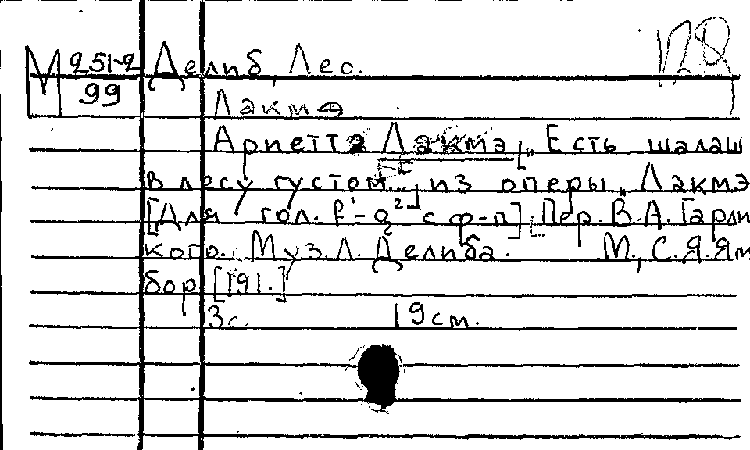 М 251-2 Делиб, Лес. 128
99
Лакмэ
Ариетта Лакмэ [„Есть шалаш
в лесу густом..."] из оперы „Лакмэ
[Для гол. f'-g² с ф-п]. Пер. В.А. Гарли
кого. Муз. Л. Делиба. М., С.Я. Ям
бор [191.]
3с. 19 см.